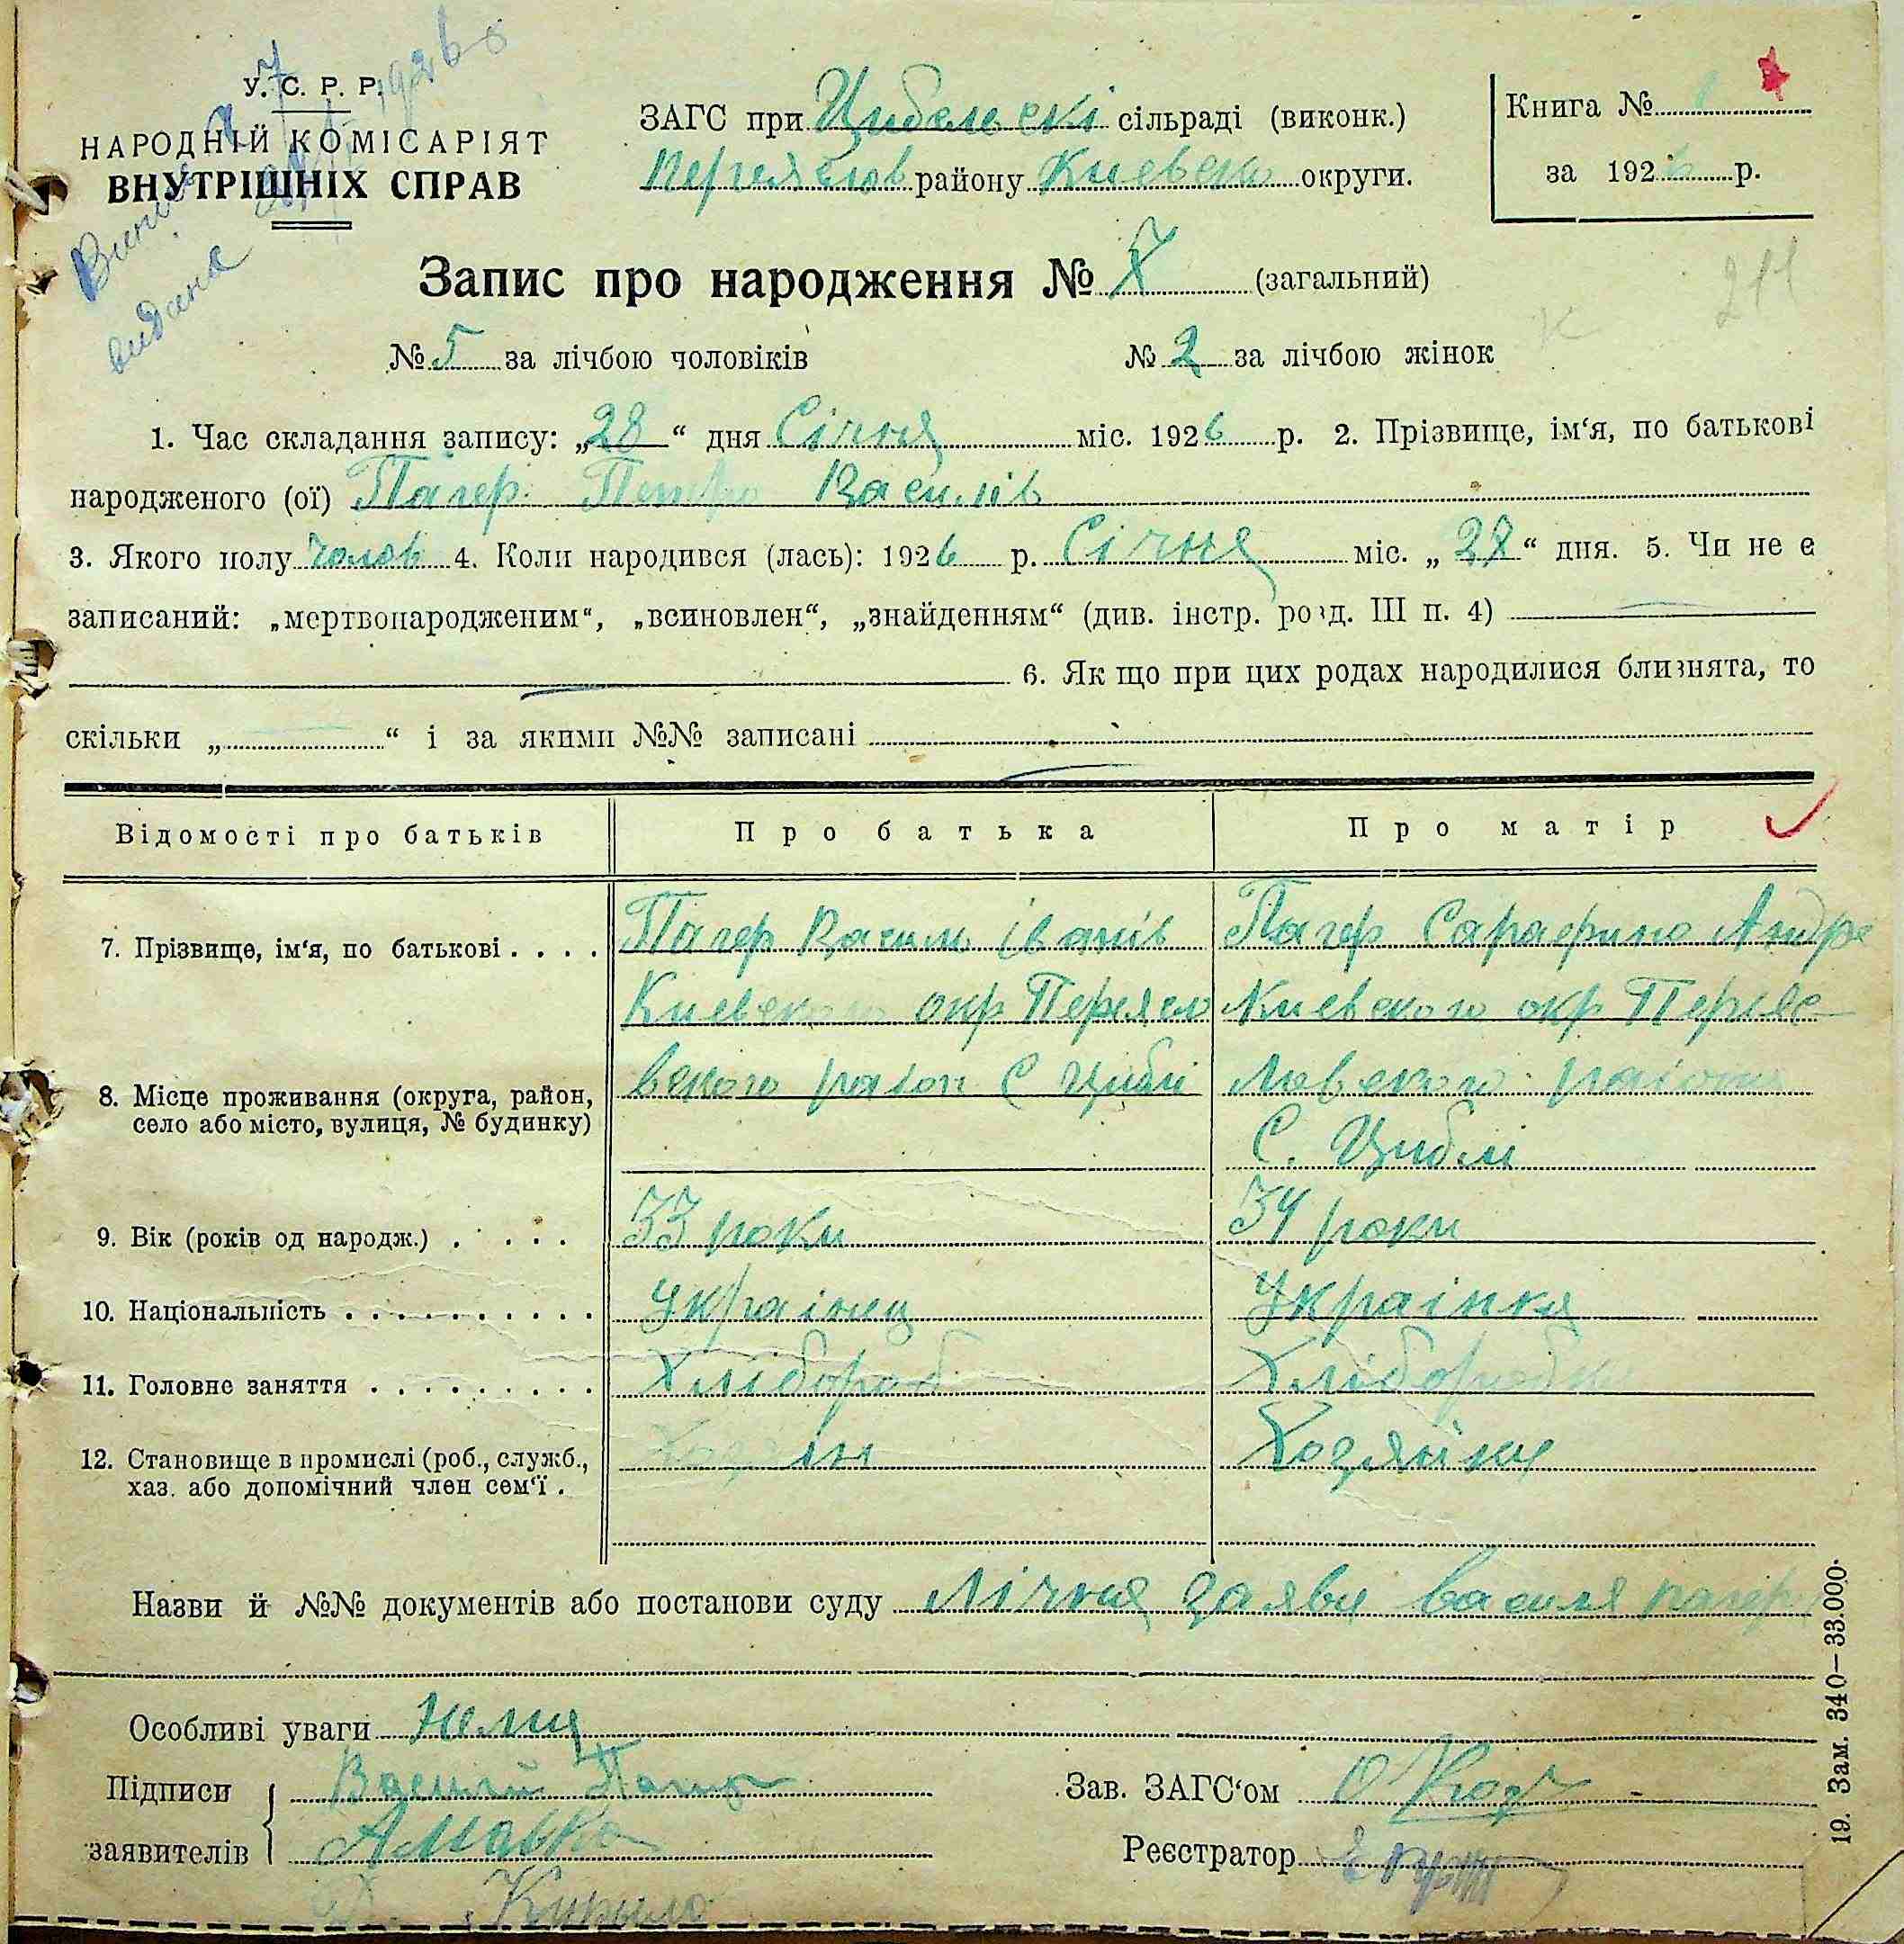 У.С.Р.Р.
НАРОДНІЙ КОМІСАРІЯТ
ВНУТРІШНІХ СПРАВ
видана
ЗАГС при Цибелескі сільраді (виконк.)
району округи.
Книга №
за 1926 р.
Запис про народження № 7 (загальний)
211
№ 5 за лічбою чоловіків № 2 за лічбою жінок
1. Час складання запису: „28“ дня Січня міс. 1926 р. 2. Прізвище, ім‘я, по батькові
народженого (ої) Пагер Петро Василів
3. Якого полу чолов 4. Коли народився (лась): 1926 р. Січня міс. „28“ дня. 5. Чи не є
записаний: „мертвонародженим“, „всиновлен“, „знайденням“ (див. інстр. розд. III п. 4)
6. Як що при цих родах народилися близнята, то
скільки „ “ і за якими №№ записані
Відомості про батьків Про батька Про матір
7. Прізвище, ім‘я, по батькові . . . . Пагер Василь Іванів Пагер Сарафина Андре
Киевского окр Переясло Киевского окр Переяс
8. Місце проживання (округа, район, село або місто, вулиця, № будинку) вского район С Циблі ловского району
С. Циблі
9. Вік (років од народж.) . . . . 33 роки 34 роки
10. Національність . . . . . . . . . . Украінец Украінка
11. Головне заняття . . . . . . . . . Хлібороб Хліборобка
12. Становище в промислі (роб., служб., хаз. або допомічний член сем‘ї . Хозяін Хозяйка
Назви й №№ документів або постанови суду Лічня заява Василя Пагер
Особливі уваги Нема
Підписи Василй Пагер Зав. ЗАГС‘ом
заявителів Реєстратор
Кирило
19. Зам. 340—33.000.